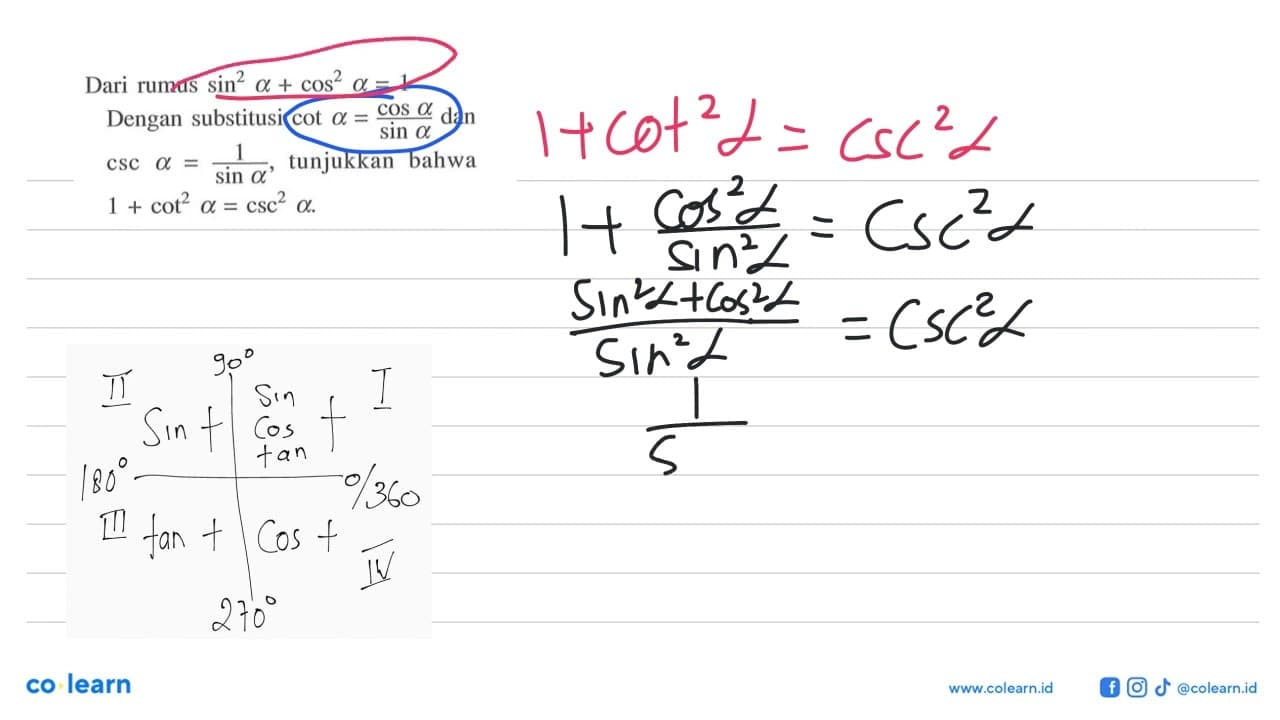 Dari rumus sin² α + cos² α = 1
Dengan substitusi cot α = cos α / sin α dan
csc α = 1 / sin α, tunjukkan bahwa
1 + cot² α = csc² α.
1 + cot² α = csc² α
1 + cos² α / sin² α = csc² α
sin² α + cos² α / sin² α = csc² α
1 / s
90°
II
Sin +
Sin
Cos
tan
+
I
180°
0/360
III
tan +
Cos +
IV
270°
co learn
www.colearn.id
@colearn.id